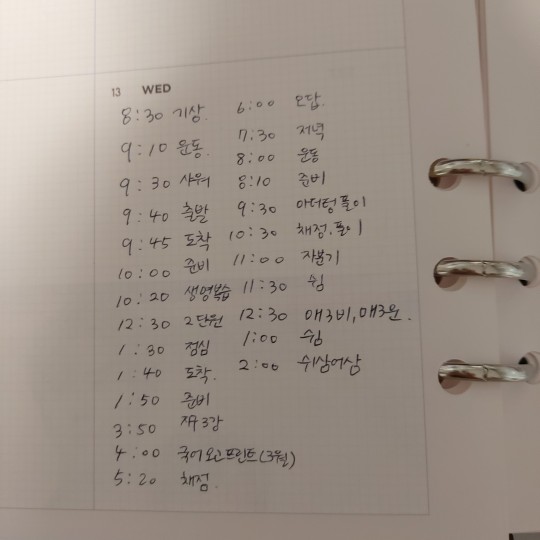 13 WED
8:30 기상.
9:10 운동.
9:30 샤워
9:40 출발
9:45 도착
10:00 준비
10:20 생명복습
12:30 2단원
1:30 점심
1:40 도착.
1:50 준비
3:50 지구3강
4:00 국어모고프린트(3월)
5:20 채점.
6:00 오답.
7:30 저녁
8:00 운동
8:10 준비
9:30 아더텅풀이
10:30 채점.풀이
11:00 자분기
11:30 쉼
12:30 매3비,매3문.
1:00 쉼
2:00 쉬삼어삼